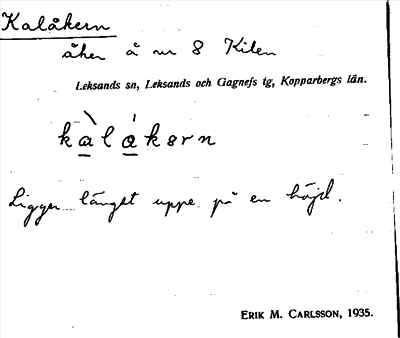 Kalåkern
åker å nr 8 Kilen
Leksands sn, Leksands och Gagnefs tg, Kopparbergs län.
kàlákørn
Ligger längst uppe på en höjd.
ERIK M. CARLSSON, 1935.